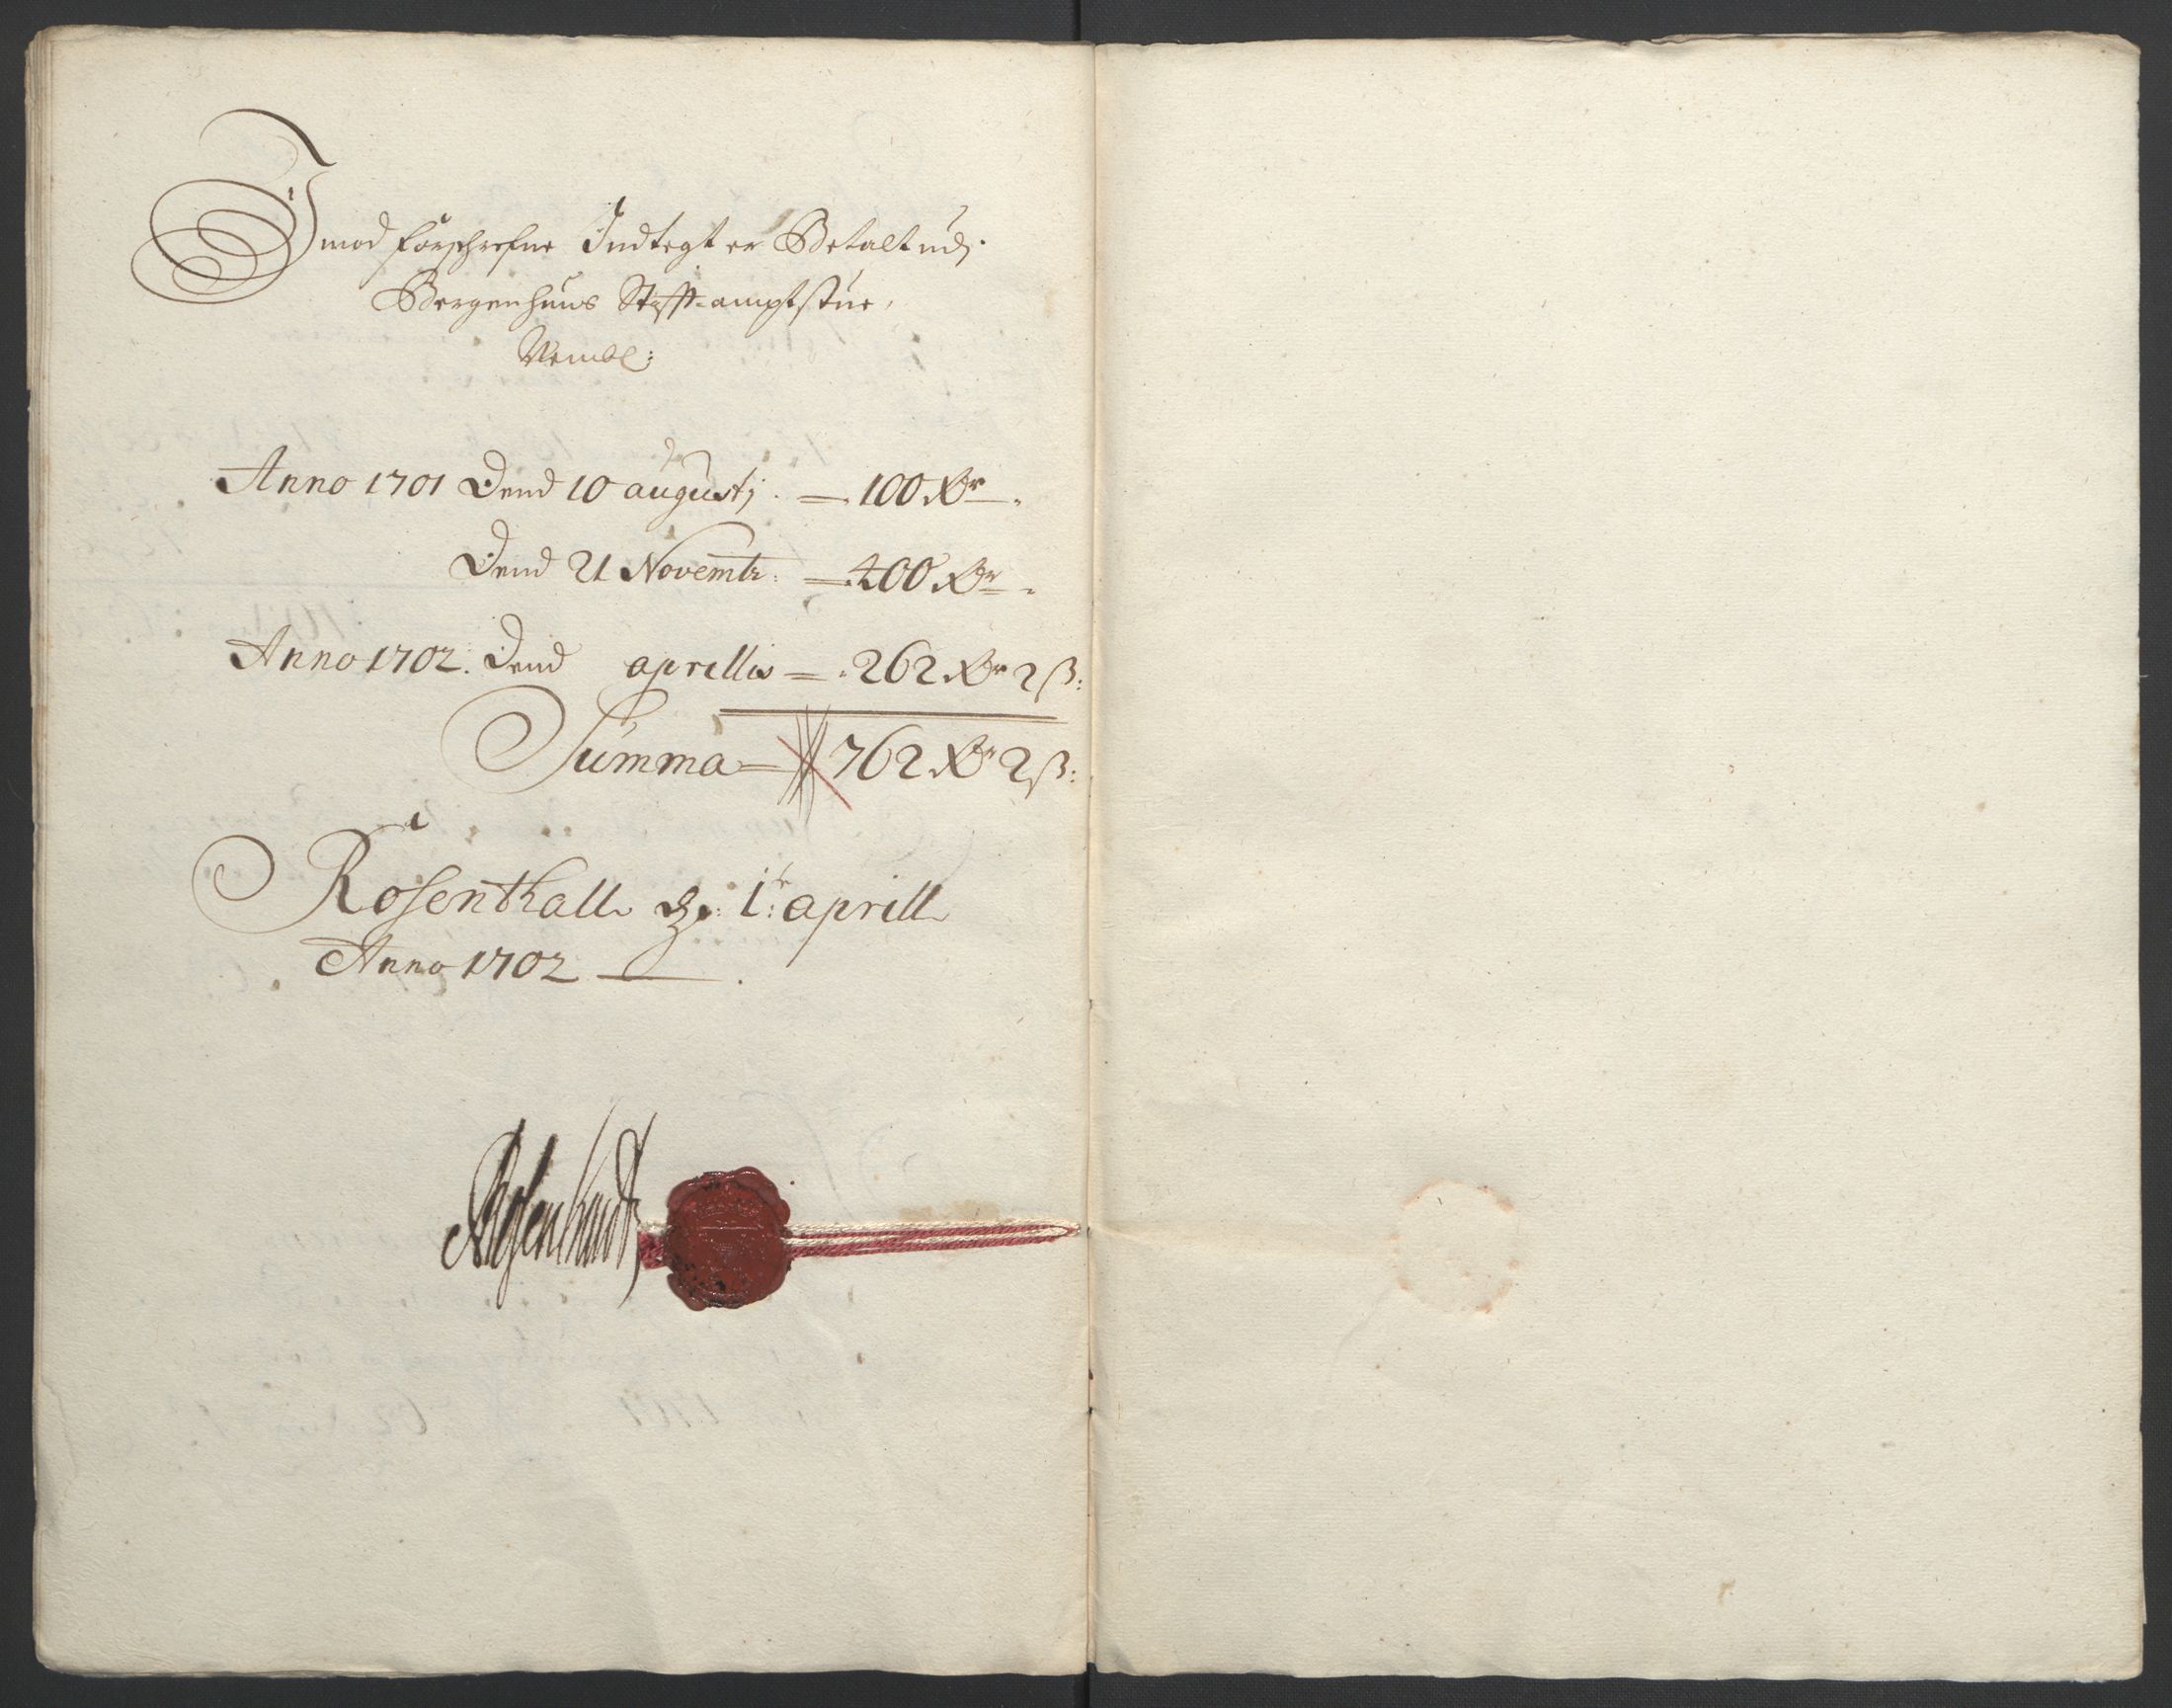 Imod forschrefne Indtegt er Betalt udj
Bergenhuus Stifft=amptstue,
Nembl:
Anno 1701 Dend 10 augustj. = 100 Rdr.
Dend 21 Novembr: = 400 Rdr.
Anno 1702. Dend aprillis = 262 Rdr 2 ß:
Summa = 762 Rdr 2 ß:
Rosenthall d: 1: aprill
Anno 1702